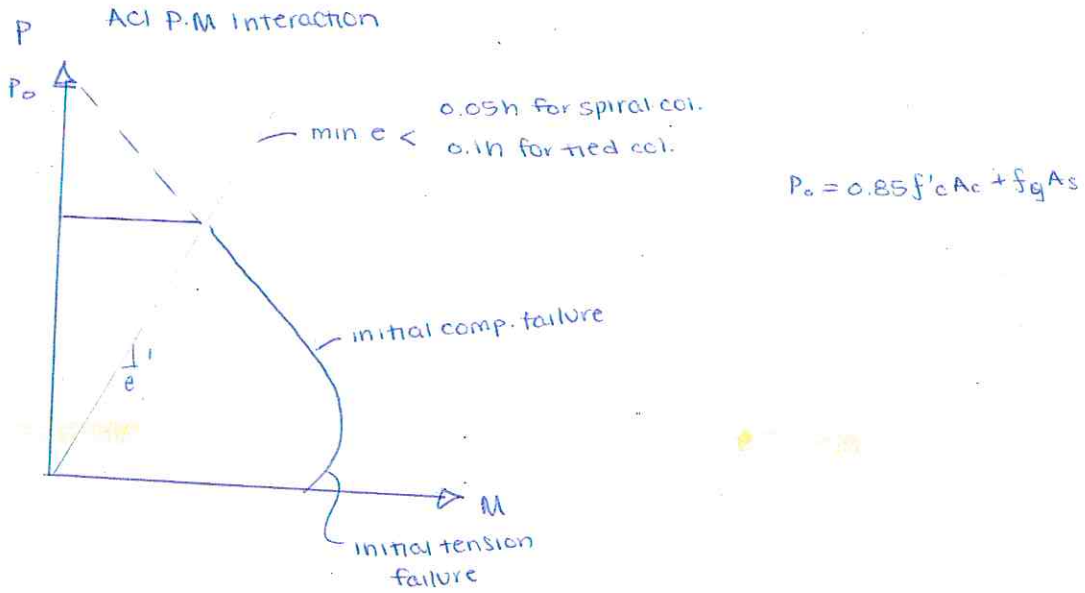 ACI P.M Interaction
P
P₀
min e <
0.05h for spiral col.
0.1h for tied col.
P₀ = 0.85f'c Ac + fy As
initial comp. failure
1
e
M
initial tension
failure